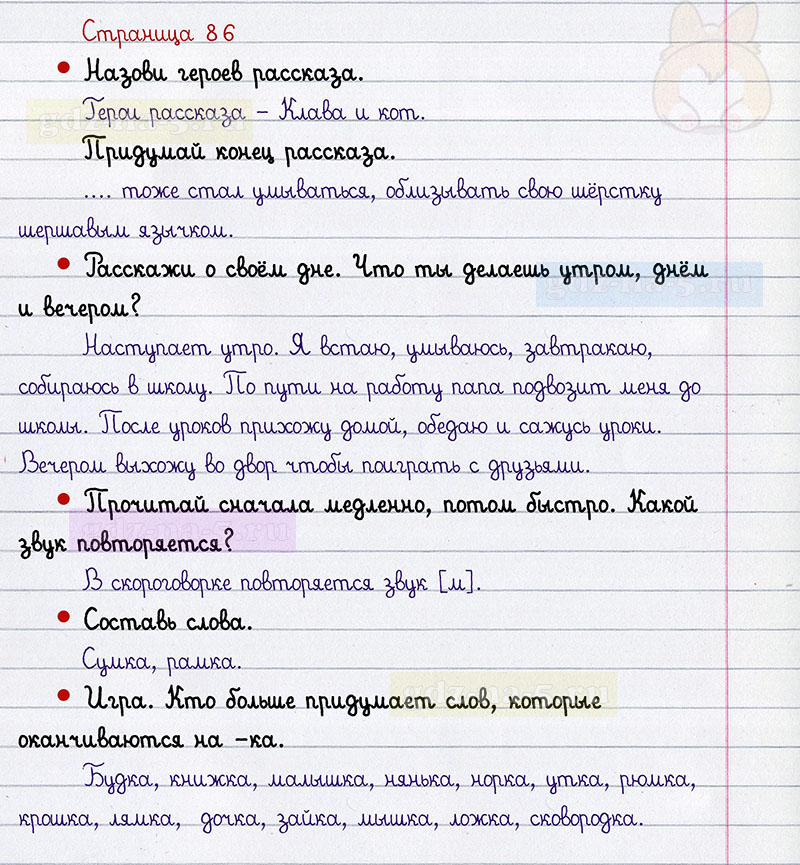 Страница 86
• Назови героев рассказа.
Герои рассказа – Клава и кот.
Придумай конец рассказа.
.... тоже стал умываться, облизывать свою шёрстку
шершавым язычком.
• Расскажи о своём дне. Что ты делаешь утром, днём
и вечером?
Наступает утро. Я встаю, умываюсь, завтракаю,
собираюсь в школу. По пути на работу папа подвозит меня до
школы. После уроков прихожу домой, обедаю и сажусь уроки.
Вечером выхожу во двор чтобы поиграть с друзьями.
• Прочитай сначала медленно, потом быстро. Какой
звук повторяется?
В скороговорке повторяется звук [м].
• Составь слова.
Сумка, рамка.
• Игра. Кто больше придумает слов, которые
оканчиваются на –ка.
Будка, книжка, малышка, нянька, норка, утка, рюмка,
крошка, лямка, дочка, зайка, мышка, ложка, сковородка.
gdz-na-5.ru
gdz-na-5.ru
gdz-na-5.ru
gdz-na-5.ru